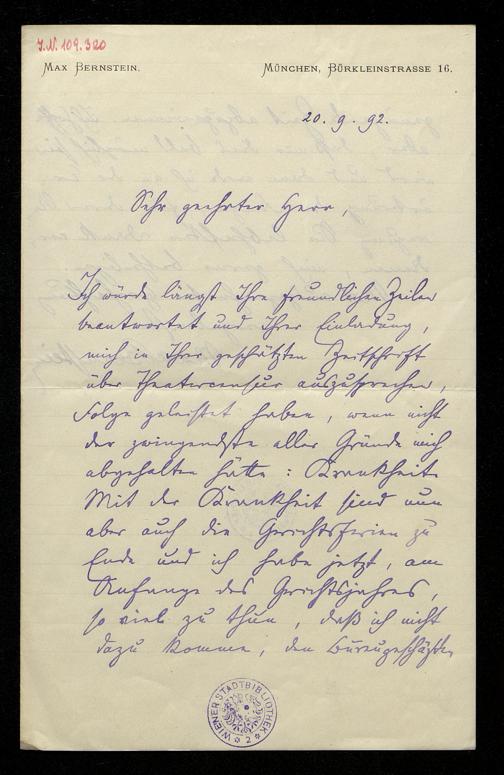 J.N. 109.320
MAX BERNSTEIN.
MÜNCHEN, BÜRKLEINSTRASSE 16.
20. 9. 92.
Sehr geehrter Herr,
Ich würde längst Ihre freundlichen Zeilen
beantwortet und Ihrer Einladung,
mich in Ihrer geschätzten Zeitschrift
über Theatercensur auszusprechen,
Folge geleistet haben, wenn nicht
der zwingendste aller Gründe mich
abgehalten hätte: Krankheit.
Mit der Krankheit sind nun
aber auch die Gerichtsferien zu
Ende und ich habe jetzt, am
Anfange des Gerichtsjahres,
so viel zu thun, daß ich nicht
dazu komme, den Bureaugeschäften
WIENER STADTBIBLIOTHEK
2